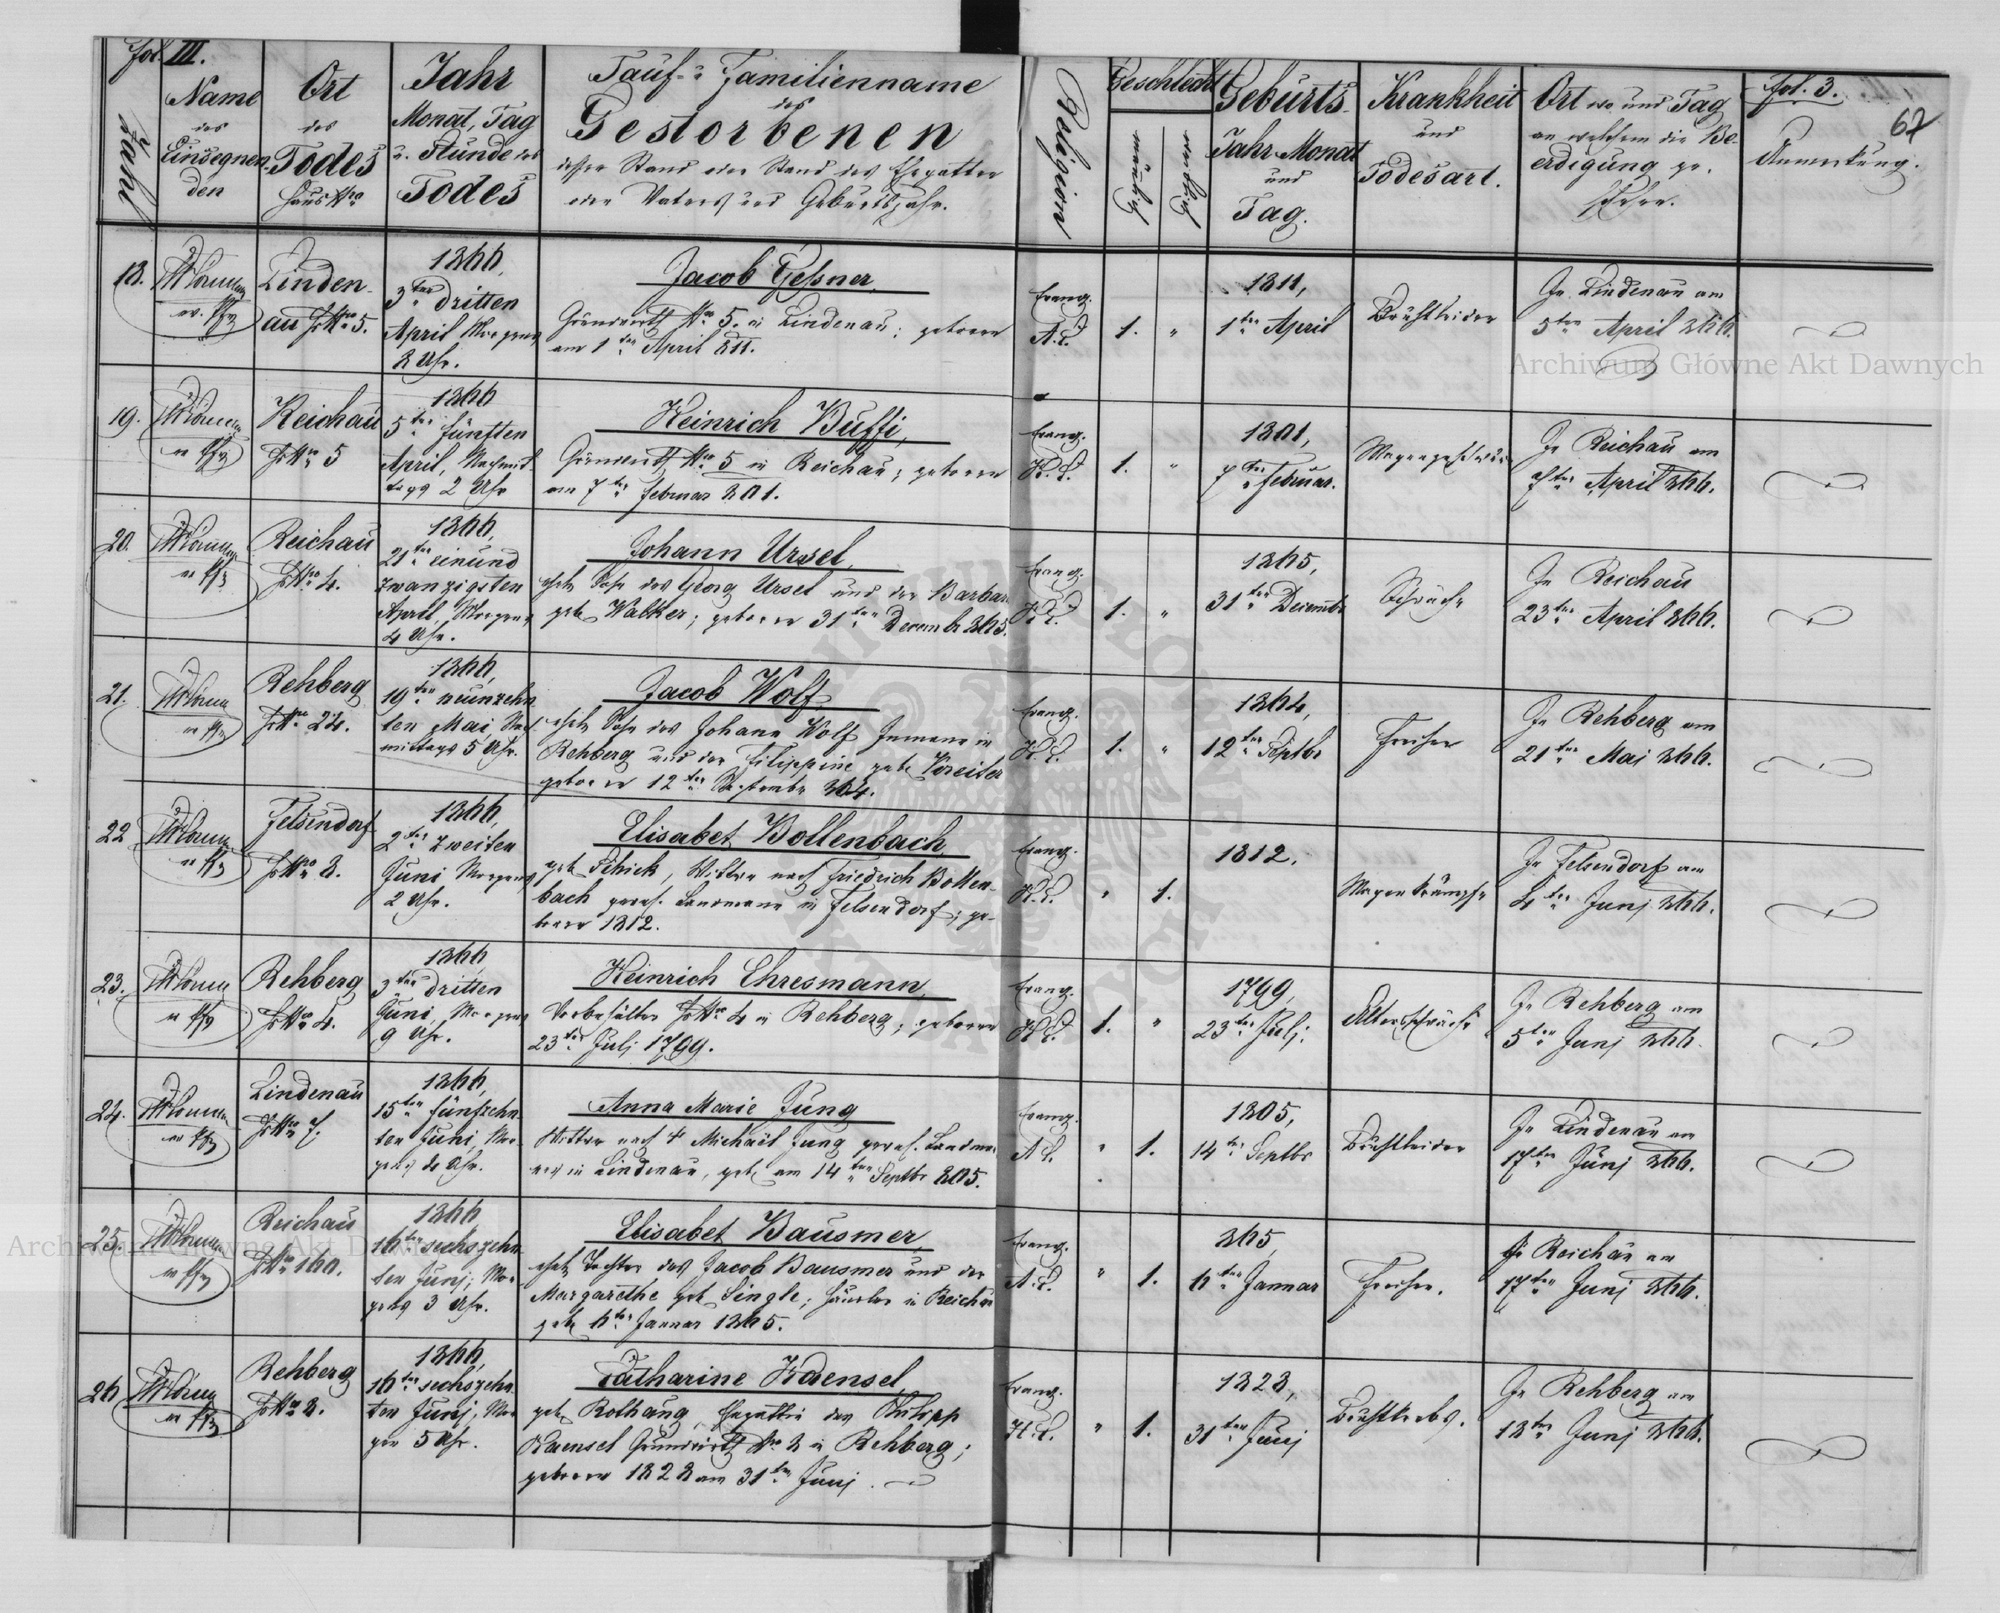 Fol. III.
Zahl
Name
des
Einsegnen-
den
Ort
des
Todes
Haus Nro
Jahr
Monat, Tag
u. Stunde des
Todes
Tauf- u Familienname
des
Gestorbenen
dessen Stand oder Stand des Ehegatten
oder Vaters und Geburtsjahr.
Religion
Geschlecht
männlich
weiblich
Geburts-
Jahr Monat
und
Tag.
Krankheit
und
Todesart.
Ort wo und Tag
an welchem die Be-
erdigung ge-
schehen.
Fol. 3.
67
Anmerkung.
18.
Linden-
au HsNro 5.
1866,
3ten dritten
April Morgens
8 Uhr.
Jacob Geßner,
Grundwirth Nro 5. in Lindenau; geboren
am 1ten April 811.
Evang.
A.C.
1.
"
1811,
1ten April
Brustleiden
In Lindenau am
5ten April 866.
19.
Reichau
HsNro 5
1866
5ten fünften
April, Nachmit-
tags 2 Uhr
Heinrich Buffi,
Grundwirth Nro 5 in Reichau; geboren
am 7ten Februar 801.
Evang.
H.C.
1.
"
1801,
7ten Februar.
In Reichau am
7ten April 866.
20.
Reichau
HsNro 4.
1866,
21ten einund
zwanzigsten
April, Morgens
4 Uhr.
Johann Ursel,
ehel. Sohn des Georg Ursel und der Barbara
geb. Walker; geboren 31ten Decembr 865.
Evang.
H.C.
1.
"
1865,
31ten Decembr
Schwäche
In Reichau
23ten April 866.
21.
Rehberg
HsNro 24.
1866,
19ten neunzehn-
ten Mai Nach-
mittags 5 Uhr.
Jacob Wolf
ehel. Sohn des Johann Wolf Inmann in
Rehberg und der Filippine geb. Kreiter
geboren 12ten Septembr 864.
Evang.
H.C.
1.
"
1864,
12ten Septbr
Fraisen
In Rehberg am
21ten Mai 866.
22
Felsendorf
HsNro 8.
1866,
2ten zweiten
Juni Morgens
2 Uhr.
Elisabet Bollenbach
geb. Schick, Wittwe nach Friedrich Bollen-
bach gewes. Landmann in Felsendorf; ge-
boren 1812.
Evang.
H.C.
"
1.
1812.
Magenkrämpfe
In Felsendorf am
4ten Junj 866.
23.
Rehberg
HsNro 4.
1866
3ten dritten
Juni, Morgens
9 Uhr.
Heinrich Ehresmann,
Vorbehälter HsNro 4 in Rehberg; geboren
23ten Julj 1799.
Evang.
H.C.
1.
"
1799,
23ten Julj.
Altersschwäche
In Rehberg am
5ten Junj 866.
24.
Lindenau
HsNro 7.
1866,
15ten fünfzehn-
ten Juni, Mor-
gens
Anna Marie Jung
Wittwe nach † Michael Jung gewes. Landman-
nes in Lindenau, geb. am 14ten Septbr 805.
Evang.
A.C.
"
1.
1805,
14ten Septbr
Brustleiden
In Lindenau am
17ten Junj 866.
25.
Reichau
HsNro 160.
1866
16ten sechszehn-
ten Junj; Mor-
gens 3 Uhr.
Elisabet Bausmer,
ehel. Tochter des Jacob Bausmer und der
Margarethe geb. Single; Häusler in Reichau
geb. 6ten Januar 1865.
Evang.
A.C.
"
1.
865,
6ten Januar
Fraisen.
In Reichau am
17ten Junj 866.
26
Rehberg
HsNro 8.
1866,
16ten sechszehn-
ten Junj; Mor-
gen 5 Uhr.
Catharine Kaensel
geb. Rothaug, Ehegattin des Philipp
Kaensel Grundwirth Nro 8 in Rehberg;
geboren 1828 am 31ten Junj.
Evang.
H.C.
"
1.
1828,
31ten Junj
Brustkrebs.
In Rehberg am
18ten Junj 866.
Archiwum Główne Akt Dawnych
Archiwum Główne Akt Dawnych